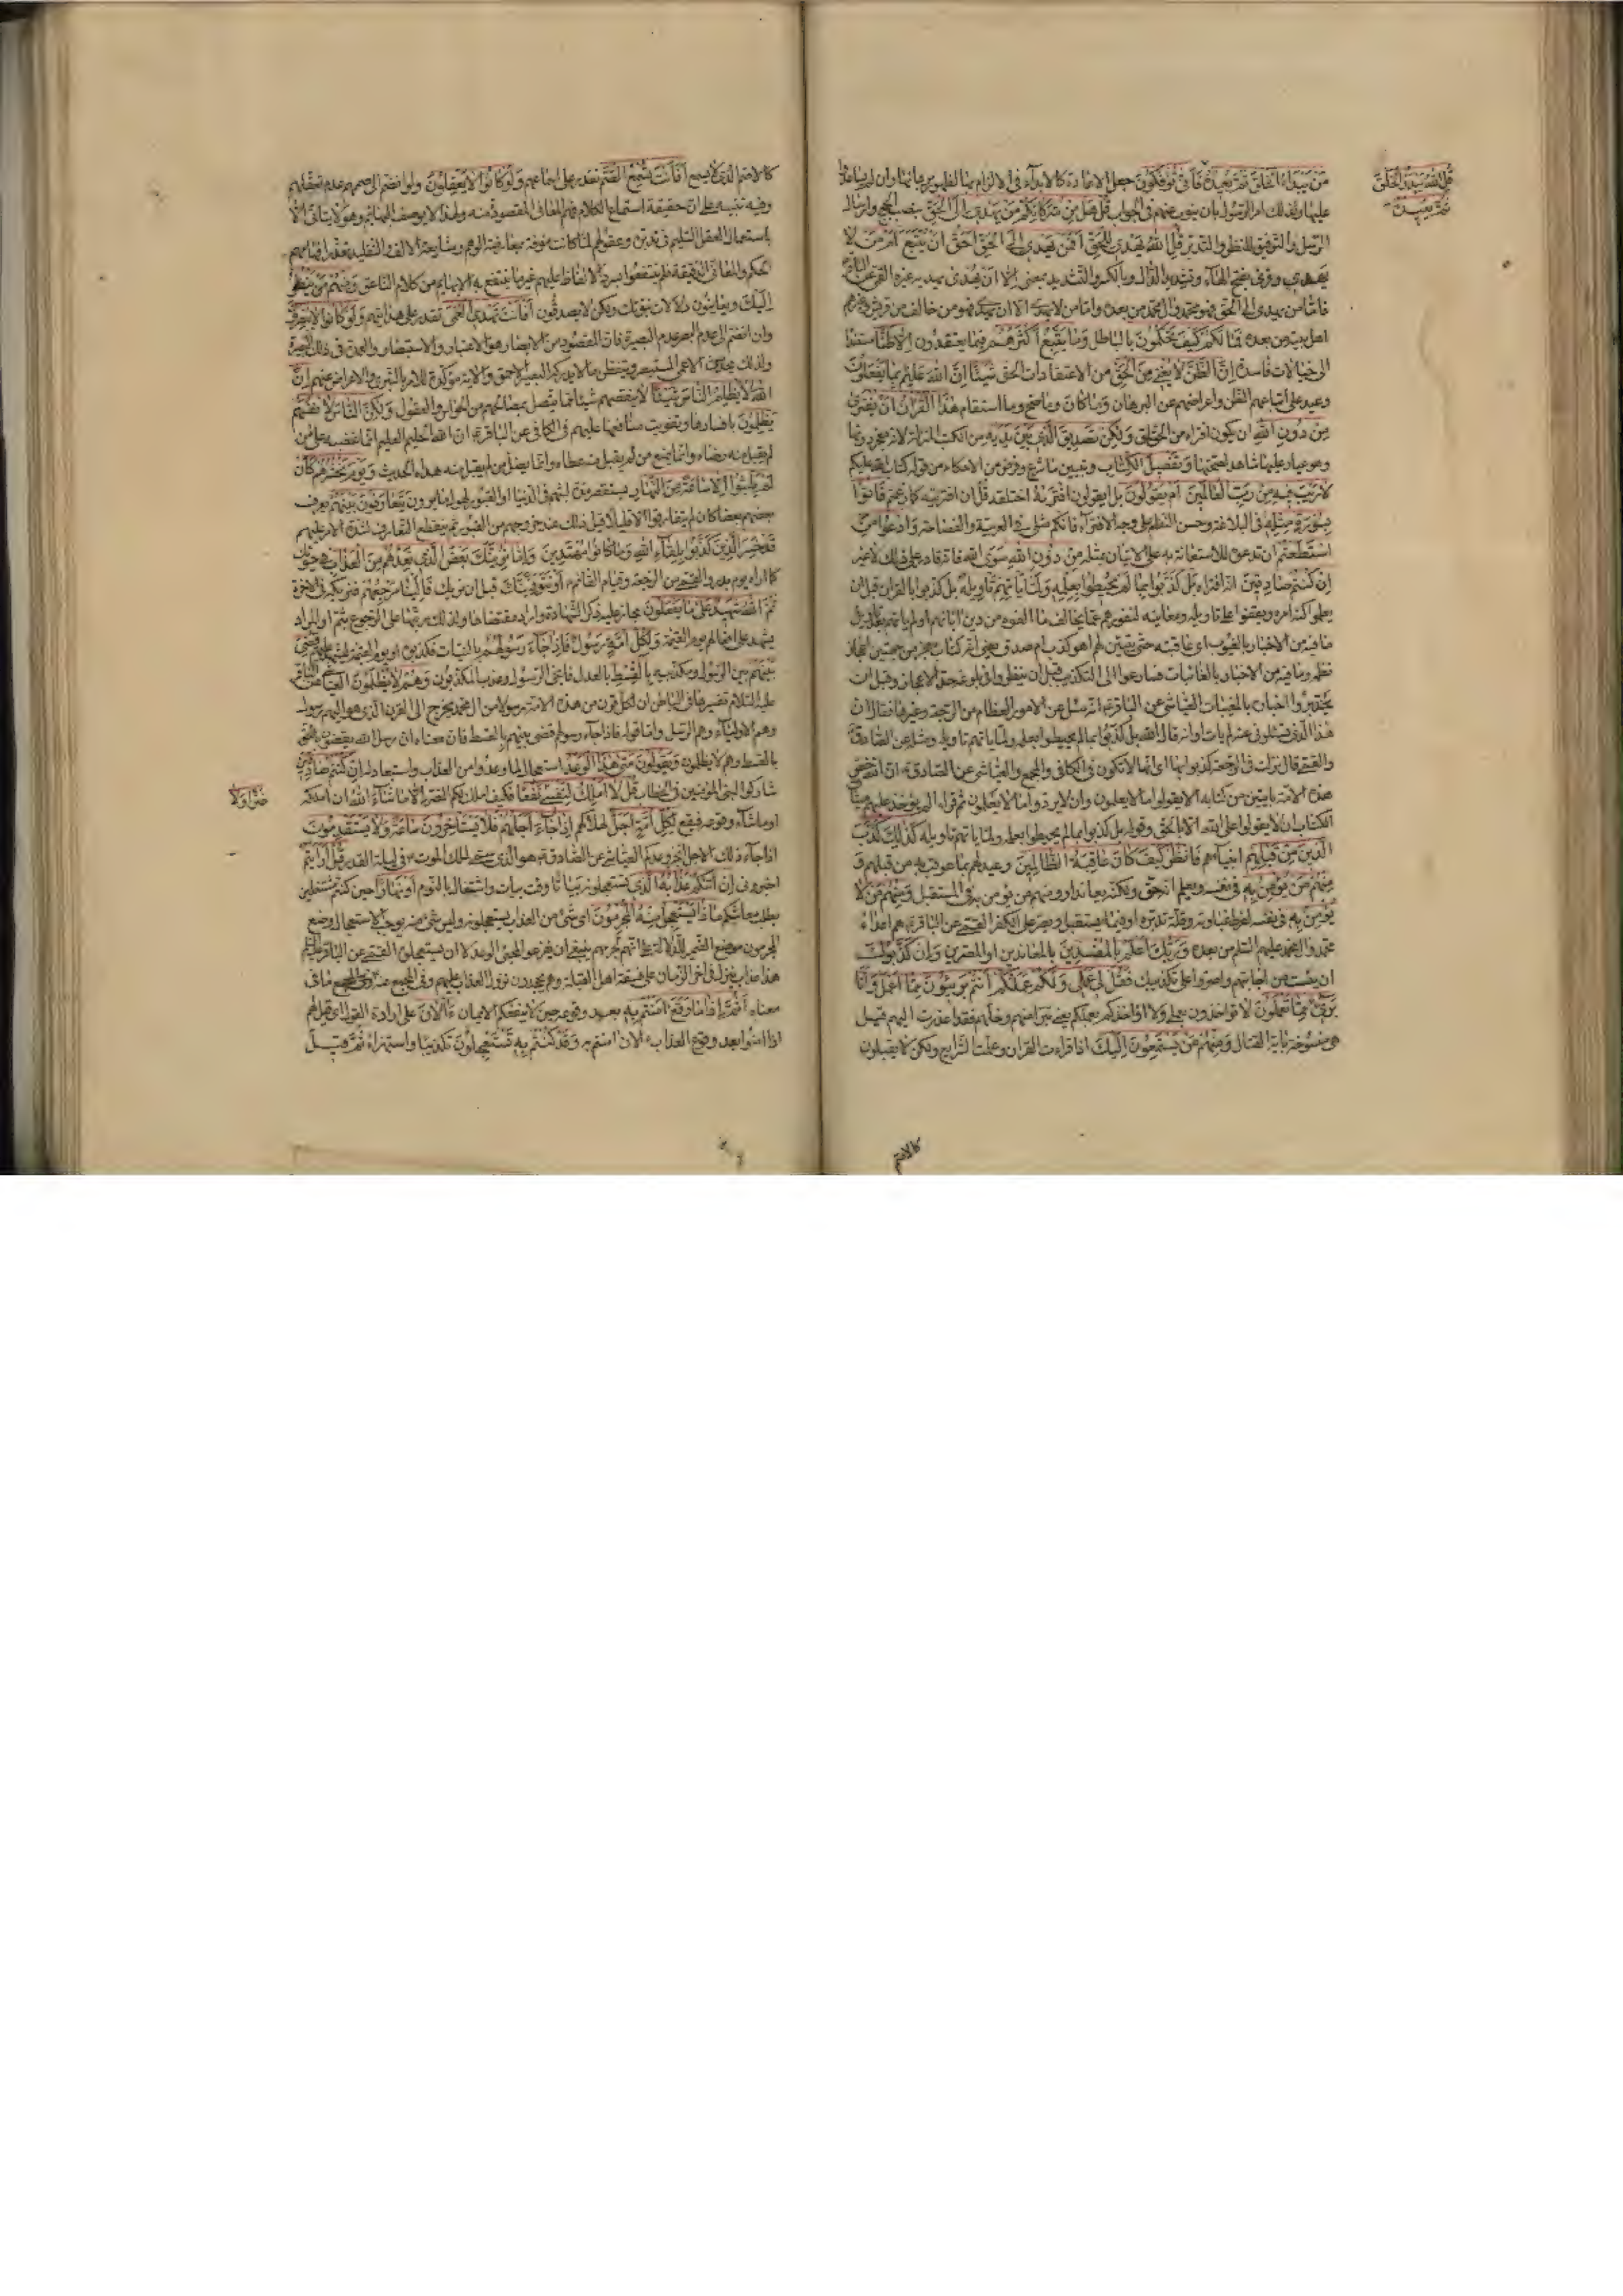 قُلِ اللهُ يَبْدَؤُا الْخَلْقَ
ثُمَّ يُعِيدُهُ
مَنْ يَبْدَاُ الْخَلْقَ ثُمَّ يُعِيدُهُ فَاَنّٰى تُؤْفَكُونَ جعل الاعادة كالابداء فى الالزام بها لظهور برهانها وان لم يساعدوا
عليها ولذلك امر الرسول بان ينوب عنهم فى الجواب قُلْ هَلْ مِنْ شُرَكَائِكُمْ مَنْ يَهْدِى اِلَى الْحَقِّ بنصب الحجج وارسال
الرسل والتوفيق للنظر والتدبر قُلِ اللهُ يَهْدِى لِلْحَقِّ اَفَمَنْ يَهْدِى اِلَى الْحَقِّ اَحَقُّ اَنْ يُتَّبَعَ اَمَّنْ لَا
يَهِدِّى وقرئ بفتح الهاء وتشديد الدال وبالكسر والتشديد بمعنى اِلَّا اَنْ يُهْدٰى يهديه غيره القمى عن الباقر
فاما من يهدى الى الحق فهو محمد وآل محمد من بعده واما من لا يهدى الا ان يهدى فهو من خالف من قريش وغيرهم
اهل بيته من بعده فَمَا لَكُمْ كَيْفَ تَحْكُمُونَ بالباطل وَمَا يَتَّبِعُ اَكْثَرُهُمْ فيما يعتقدون اِلَّا ظَنًّا مستندا
الى خيالات فاسدة اِنَّ الظَّنَّ لَا يُغْنِى مِنَ الْحَقِّ من الاعتقادات الحق شَيْئًا اِنَّ اللهَ عَلِيمٌ بِمَا يَفْعَلُونَ
وعيد على اتباعهم الظن واعراضهم عن البرهان وَمَا كَانَ وما صح وما استقام هٰذَا الْقُرْاٰنُ اَنْ يُفْتَرٰى
مِنْ دُونِ اللهِ ان يكون افتراء من الخلق وَلٰكِنْ تَصْدِيقَ الَّذِى بَيْنَ يَدَيْهِ من الكتب المنزلة لانه معجز دونها
وهو عيار عليها شاهد لصحتها وَتَفْصِيلَ الْكِتَابِ وتبيين ما شرع وفرض من الاحكام من قوله كتاب الله عليكم
لَا رَيْبَ فِيهِ مِنْ رَبِّ الْعَالَمِينَ اَمْ يَقُولُونَ بل ايقولون افْتَرٰيهُ اختلقه قُلْ ان افتريته كما زعمتم فَاْتُوا
بِسُورَةٍ مِثْلِهِ فى البلاغة وحسن النظم على وجه الافتراء فانكم مثلى فى العربية والفصاحة وَادْعُوا مَنِ
اسْتَطَعْتُمْ ان تدعوه للاستعانة به على الاتيان بمثله مِنْ دُونِ اللهِ سوى الله فانه قادر على ذلك لا غير
اِنْ كُنْتُمْ صَادِقِينَ انه افتراء بَلْ كَذَّبُوا بِمَا لَمْ يُحِيطُوا بِعِلْمِهِ وَلَمَّا يَاْتِهِمْ تَاْوِيلُهُ بل كذبوا بالقران قبل ان
يعلموا كنه امره ويقفوا على تاويله ومعانيه لنفورهم عما يخالف ما الفوه من دين ابائهم او لم ياتهم بعد تاويل
ما فيه من الاخبار بالغيوب اى عاقبته حتى يتبين لهم اهو كذب ام صدق يعنى انه كتاب معجز من جهتين اعجاز
نظمه وما فيه من الاخبار بالغائبات فسارعوا الى التكذيب قبل ان ينظروا فى بلوغه حد الاعجاز وقبل ان
يختبروا اخباره بالمغيبات العياشى عن الباقر انه سئل عن الامور العظام من الرجعة وغيرها فقال ان
هذا الذى تسئلونى عنه لم يات اوانه قال الله بل كذبوا بما لم يحيطوا بعلمه ولما ياتهم تاويله ومثله عن الصادق
والقمى قال نزلت فى الرجعة كذبوا بها اى انها لا تكون وفى الكافى والمجمع والعياشى عن الصادق ان الله خص
هذه الامة بايتين من كتابه الا يقولوا ما لا يعلمون وان لا يردوا ما لا يعلمون ثم قرا الم يوخذ عليهم ميثاق
الكتاب ان لا يقولوا على الله الا الحق وقوله بل كذبوا بما لم يحيطوا بعلمه ولما ياتهم تاويله كَذٰلِكَ كَذَّبَ
الَّذِينَ مِنْ قَبْلِهِمْ انبياءهم فَانْظُرْ كَيْفَ كَانَ عَاقِبَةُ الظَّالِمِينَ وعيد لهم بما عوقب به من قبلهم وَ
مِنْهُمْ مَنْ يُؤْمِنُ بِهِ فى نفسه ويعلم انه حق ولكنه يعاند او ومنهم من يؤمن به فى المستقبل وَمِنْهُمْ مَنْ لَا
يُؤْمِنُ بِهِ فى نفسه لفرط غباوته وقلة تدبره او فيما يستقبل ويصر على الكفر القمى عن الباقر هم اعداء
محمد وآل محمد عليهم السلم من بعده وَرَبُّكَ اَعْلَمُ بِالْمُفْسِدِينَ بالمعاندين او المصرين وَاِنْ كَذَّبُوكَ
ان يئست من اجابتهم واصروا على تكذيبك فَقُلْ لِى عَمَلِى وَلَكُمْ عَمَلُكُمْ اَنْتُمْ بَرِيئُونَ مِمَّا اَعْمَلُ وَاَنَا
بَرِىءٌ مِمَّا تَعْمَلُونَ لا تؤاخذون بعملى ولا اؤاخذ بعملكم يعنى تبرا منهم وخلهم فقد اعذرت اليهم قيل
هى منسوخة باية القتال وَمِنْهُمْ مَنْ يَسْتَمِعُونَ اِلَيْكَ اذا قرات القران وعلمت الشرايع ولكن لا يقبلون
كالاصم
كالاصم الذى لا يسمع اَفَاَنْتَ تُسْمِعُ الصُّمَّ تقدر على اسماعهم وَلَوْ كَانُوا لَا يَعْقِلُونَ ولو انضم الى صممهم عدم تعقلهم
وفيه تنبيه على ان حقيقة استماع الكلام فهم المعانى المقصودة منه ولهذا لا يوصف به البهائم وهو لا يتاتى الا
باستعمال العقل السليم فى تدبره وعقولهم لما كانت مؤفة بمعارضة الوهم ومشايعة الالف والتقليد تعذر افهامهم
الحكم والمعانى الدقيقة فلم ينتفعوا بسرد الالفاظ عليهم غير ما ينتفع به البهايم من كلام الناعق وَمِنْهُمْ مَنْ يَنْظُرُ
اِلَيْكَ ويعاينون دلالات نبوتك ولكن لا يصدقون اَفَاَنْتَ تَهْدِى الْعُمْىَ تقدر على هدايتهم وَلَوْ كَانُوا لَا يُبْصِرُونَ
وان انضم الى عدم البصر عدم البصيرة فان المقصود من الابصار هو الاعتبار والاستبصار والعمدة فى ذلك البصيرة
ولذلك يحدس الاعمى المستبصر ويتفطن ما لا يدركه البصير الاحمق والاية مؤكدة للامر بالتبرى والاعراض عنهم اِنَّ
اللهَ لَا يَظْلِمُ النَّاسَ شَيْئًا لا ينقصهم شيئا مما يتصل بمصالحهم من الحواس والعقول وَلٰكِنَّ النَّاسَ اَنْفُسَهُمْ
يَظْلِمُونَ بافسادها وتفويت منافعها عليهم فى الكافى عن الباقر ان الله الحليم العليم انما غضبه على من
لم يقبل منه رضاه وانما يمنع من لم يقبل منه عطاه وانما يضل من لم يقبل منه هداه الحديث وَيَوْمَ يَحْشُرُهُمْ كَاَنْ
لَمْ يَلْبَثُوا اِلَّا سَاعَةً مِنَ النَّهَارِ يستقصرون مدة لبثهم فى الدنيا او القبور لهول ما يرون يَتَعَارَفُونَ بَيْنَهُمْ يعرف
بعضهم بعضا كان لم يتفارقوا الا قليلا قيل ذلك عند خروجهم من القبور ثم ينقطع التعارف لشدة الامر عليهم
قَدْ خَسِرَ الَّذِينَ كَذَّبُوا بِلِقَاءِ اللهِ وَمَا كَانُوا مُهْتَدِينَ وَاِمَّا نُرِيَنَّكَ بَعْضَ الَّذِى نَعِدُهُمْ من العذاب فى حيوتك
كما اراه يوم بدر والقمى من الرجعة وقيام القائم اَوْ نَتَوَفَّيَنَّكَ قبل ان نريك فَاِلَيْنَا مَرْجِعُهُمْ فنريكه فى الاخرة
ثُمَّ اللهُ شَهِيدٌ عَلٰى مَا يَفْعَلُونَ مجاز عليه ذكر الشهادة واراد مقتضاها ولذلك رتبها على الرجوع بثم او المراد
يشهد على افعالهم يوم القيمة وَلِكُلِّ اُمَّةٍ رَسُولٌ فَاِذَا جَاءَ رَسُولُهُمْ بالبينات فكذبوه او يوم القيمة ليشهد عليهم قُضِىَ
بَيْنَهُمْ بين الرسول ومكذبيه بِالْقِسْطِ بالعدل فانجى الرسول وعذب المكذبون وَهُمْ لَا يُظْلَمُونَ العياشى عن الباقر
عليه السلام تفسيرها فى الباطن ان لكل قرن من هذه الامة رسولا من ال محمد يخرج الى القرن الذى هو اليهم رسول
وهم الاولياء وهم الرسل واما قوله فاذا جاء رسولهم قضى بينهم بالقسط فان معناه ان رسل الله يقضون بالقسط
بالقسط وهم لا يظلمون وَيَقُولُونَ مَتٰى هٰذَا الْوَعْدُ استعجال لما وعدوا من العذاب واستبعاد له اِنْ كُنْتُمْ صَادِقِينَ
شاركوا النبى المؤمنين فى الخطاب قُلْ لَا اَمْلِكُ لِنَفْسِى نَفْعًا فكيف املك لكم الضر اِلَّا مَا شَاءَ اللهُ ان املكه
ضَرًّا وَلَا
او ما شاء وقوعه فيقع لِكُلِّ اُمَّةٍ اَجَلٌ لهلاكهم اِذَا جَاءَ اَجَلُهُمْ فَلَا يَسْتَاْخِرُونَ سَاعَةً وَلَا يَسْتَقْدِمُونَ
اذا جاء ذلك الاجل انجز وعدكم العياشى عن الصادق هو الذى سمى لملك الموت فى ليلة القدر قُلْ اَرَاَيْتُمْ
اخبرونى اِنْ اَتٰيكُمْ عَذَابُهُ الذى تستعجلونه بَيَاتًا وقت بيات واشتغال بالنوم اَوْ نَهَارًا حين كنتم مشتغلين
بطلب معاشكم مَاذَا يَسْتَعْجِلُ مِنْهُ الْمُجْرِمُونَ اى شىء من العذاب يستعجلونه وليس شىء منه يوجب الاستعجال وضع
المجرمون موضع الضمير للدلالة على انهم لجرمهم ينبغى ان يفزعوا لمجىء الوعيد لا ان يستعجلوه القمى عن الباقر عليه السلم
هذا عذاب ينزل فى اخر الزمان على فسقة اهل القبلة وهم يجحدون نزول العذاب عليهم وفى المجمع عنه ما فى
معناه اَثُمَّ اِذَا مَا وَقَعَ اٰمَنْتُمْ بِهِ بعد وقوعه حين لا ينفعكم الايمان ءَاٰلْاٰنَ على ارادة القول اى قيل لهم
اذا امنوا بعد وقوع العذاب ءالان امنتم به وَقَدْ كُنْتُمْ بِهِ تَسْتَعْجِلُونَ تكذيبا واستهزاء ثُمَّ قِيلَ